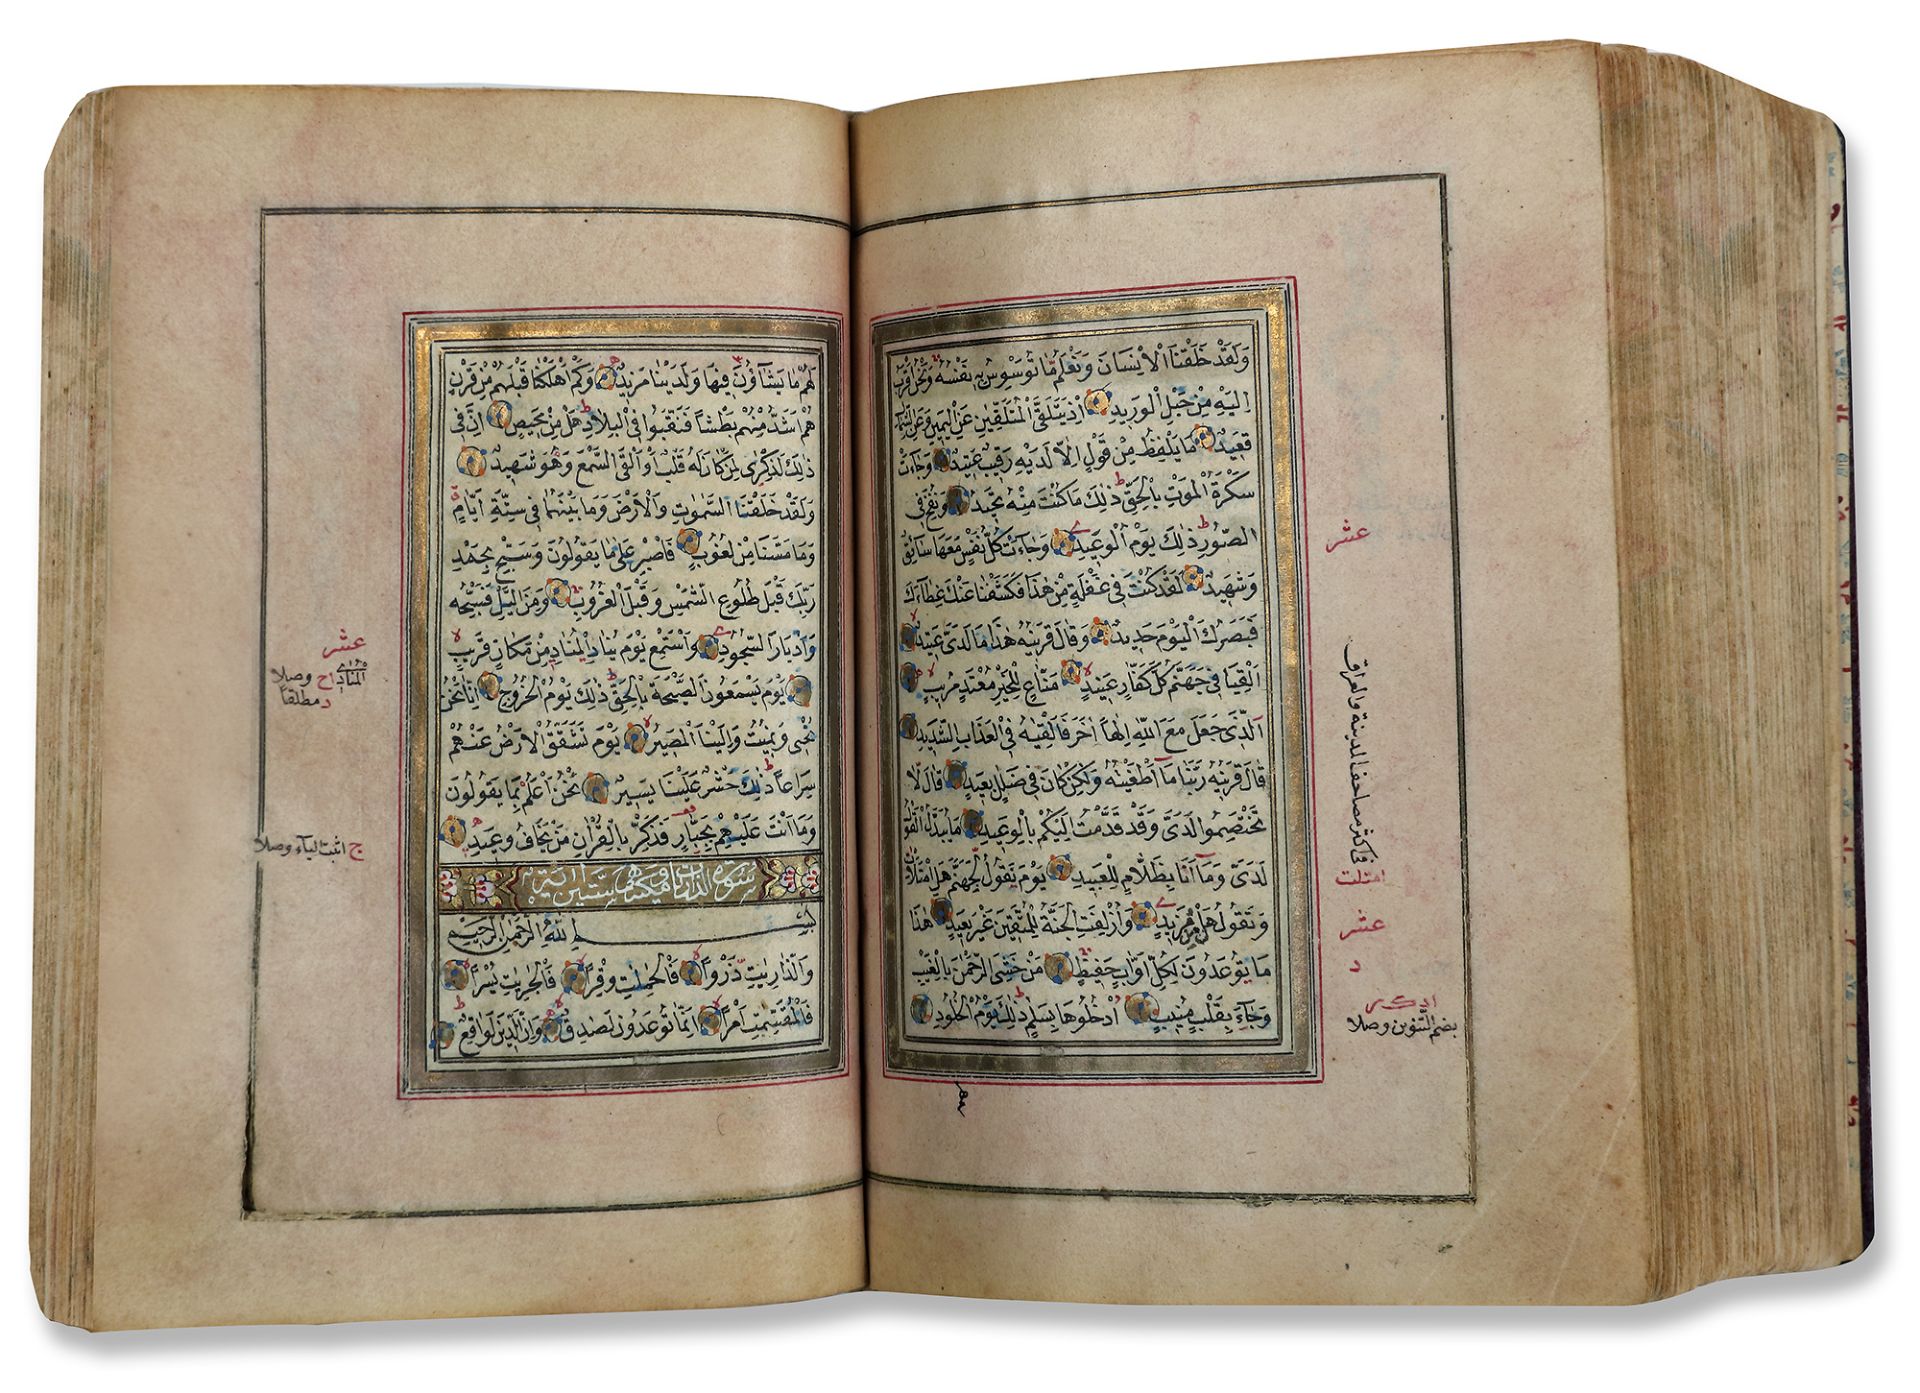 وَلَقَدْ خَلَقْنَا الْاِنْسَانَ وَنَعْلَمُ مَا تُوَسْوِسُ بِهِ نَفْسُهُ وَنَحْنُ اَقْرَبُ
اِلَيْهِ مِنْ حَبْلِ الْوَرِيدِ اِذْ يَتَلَقَّى الْمُتَلَقِّيَنِ عَنِ الْيَمِينِ وَعَنِ الشِّمَالِ
قَعِيدٌ مَا يَلْفِظُ مِنْ قَوْلٍ اِلَّا لَدَيْهِ رَقِيبٌ عَتِيدٌ وَجَاءَتْ
سَكْرَةُ الْمَوْتِ بِالْحَقِّ ذٰلِكَ مَا كُنْتَ مِنْهُ تَحِيدُ وَنُفِخَ فِي
الصُّورِ ذٰلِكَ يَوْمُ الْوَعِيدِ وَجَاءَتْ كُلُّ نَفْسٍ مَعَهَا سَائِقٌ
وَشَهِيدٌ لَقَدْ كُنْتَ فِي غَفْلَةٍ مِنْ هٰذَا فَكَشَفْنَا عَنْكَ غِطَاءَكَ
فَبَصَرُكَ الْيَوْمَ حَدِيدٌ وَقَالَ قَرِينُهُ هٰذَا مَا لَدَيَّ عَتِيدٌ
اَلْقِيَا فِي جَهَنَّمَ كُلَّ كَفَّارٍ عَنِيدٍ مَنَّاعٍ لِلْخَيْرِ مُعْتَدٍ مُرِيبٍ
اَلَّذِي جَعَلَ مَعَ اللّٰهِ اِلٰهًا اٰخَرَ فَاَلْقِيَاهُ فِي الْعَذَابِ الشَّدِيدِ
قَالَ قَرِينُهُ رَبَّنَا مَا اَطْغَيْتُهُ وَلٰكِنْ كَانَ فِي ضَلَالٍ بَعِيدٍ قَالَ لَا
تَخْتَصِمُوا لَدَيَّ وَقَدْ قَدَّمْتُ اِلَيْكُمْ بِالْوَعِيدِ مَا يُبَدَّلُ الْقَوْلُ
لَدَيَّ وَمَا اَنَا بِظَلَّامٍ لِلْعَبِيدِ يَوْمَ نَقُولُ لِجَهَنَّمَ هَلِ امْتَلَأْتِ
وَتَقُولُ هَلْ مِنْ مَزِيدٍ وَاُزْلِفَتِ الْجَنَّةُ لِلْمُتَّقِينَ غَيْرَ بَعِيدٍ هٰذَا
مَا تُوعَدُونَ لِكُلِّ اَوَّابٍ حَفِيظٍ مَنْ خَشِيَ الرَّحْمٰنَ بِالْغَيْبِ
وَجَاءَ بِقَلْبٍ مُنِيبٍ اُدْخُلُوهَا بِسَلٰمٍ ذٰلِكَ يَوْمُ الْخُلُودِ
عشر
في اكثر مصاحف المدينة والعراق
امتلت
عشر
د
بضم التنوين وصلا
لَهُمْ مَا يَشَاؤُنَ فِيهَا وَلَدَيْنَا مَزِيدٌ وَكَمْ اَهْلَكْنَا قَبْلَهُمْ مِنْ قَرْنٍ
هُمْ اَشَدُّ مِنْهُمْ بَطْشًا فَنَقَّبُوا فِي الْبِلَادِ هَلْ مِنْ مَحِيصٍ اِنَّ فِي
ذٰلِكَ لَذِكْرٰى لِمَنْ كَانَ لَهُ قَلْبٌ اَوْ اَلْقَى السَّمْعَ وَهُوَ شَهِيدٌ
وَلَقَدْ خَلَقْنَا السَّمٰوٰتِ وَالْاَرْضَ وَمَا بَيْنَهُمَا فِي سِتَّةِ اَيَّامٍ
وَمَا مَسَّنَا مِنْ لُغُوبٍ فَاصْبِرْ عَلٰى مَا يَقُولُونَ وَسَبِّحْ بِحَمْدِ
رَبِّكَ قَبْلَ طُلُوعِ الشَّمْسِ وَقَبْلَ الْغُرُوبِ وَمِنَ الَّيْلِ فَسَبِّحْهُ
وَاَدْبَارَ السُّجُودِ وَاسْتَمِعْ يَوْمَ يُنَادِ الْمُنَادِ مِنْ مَكَانٍ قَرِيبٍ
يَوْمَ يَسْمَعُونَ الصَّيْحَةَ بِالْحَقِّ ذٰلِكَ يَوْمُ الْخُرُوجِ اِنَّا نَحْنُ
نُحْيِي وَنُمِيتُ وَاِلَيْنَا الْمَصِيرُ يَوْمَ تَشَقَّقُ الْاَرْضُ عَنْهُمْ
سِرَاعًا ذٰلِكَ حَشْرٌ عَلَيْنَا يَسِيرٌ نَحْنُ اَعْلَمُ بِمَا يَقُولُونَ
وَمَا اَنْتَ عَلَيْهِمْ بِجَبَّارٍ فَذَكِّرْ بِالْقُرْاٰنِ مَنْ يَخَافُ وَعِيدِ
سورة الذاريات مكية وهي ستين اية
بِسْمِ اللّٰهِ الرَّحْمٰنِ الرَّحِيمِ
وَالذّٰرِيٰتِ ذَرْوًا فَالْحٰمِلٰتِ وِقْرًا فَالْجٰرِيٰتِ يُسْرًا
فَالْمُقَسِّمٰتِ اَمْرًا اِنَّمَا تُوعَدُونَ لَصَادِقٌ وَاِنَّ الدِّينَ لَوَاقِعٌ
عشر
المنادي اح وصلا
د مطلقا
ج اثبت الياء وصلا